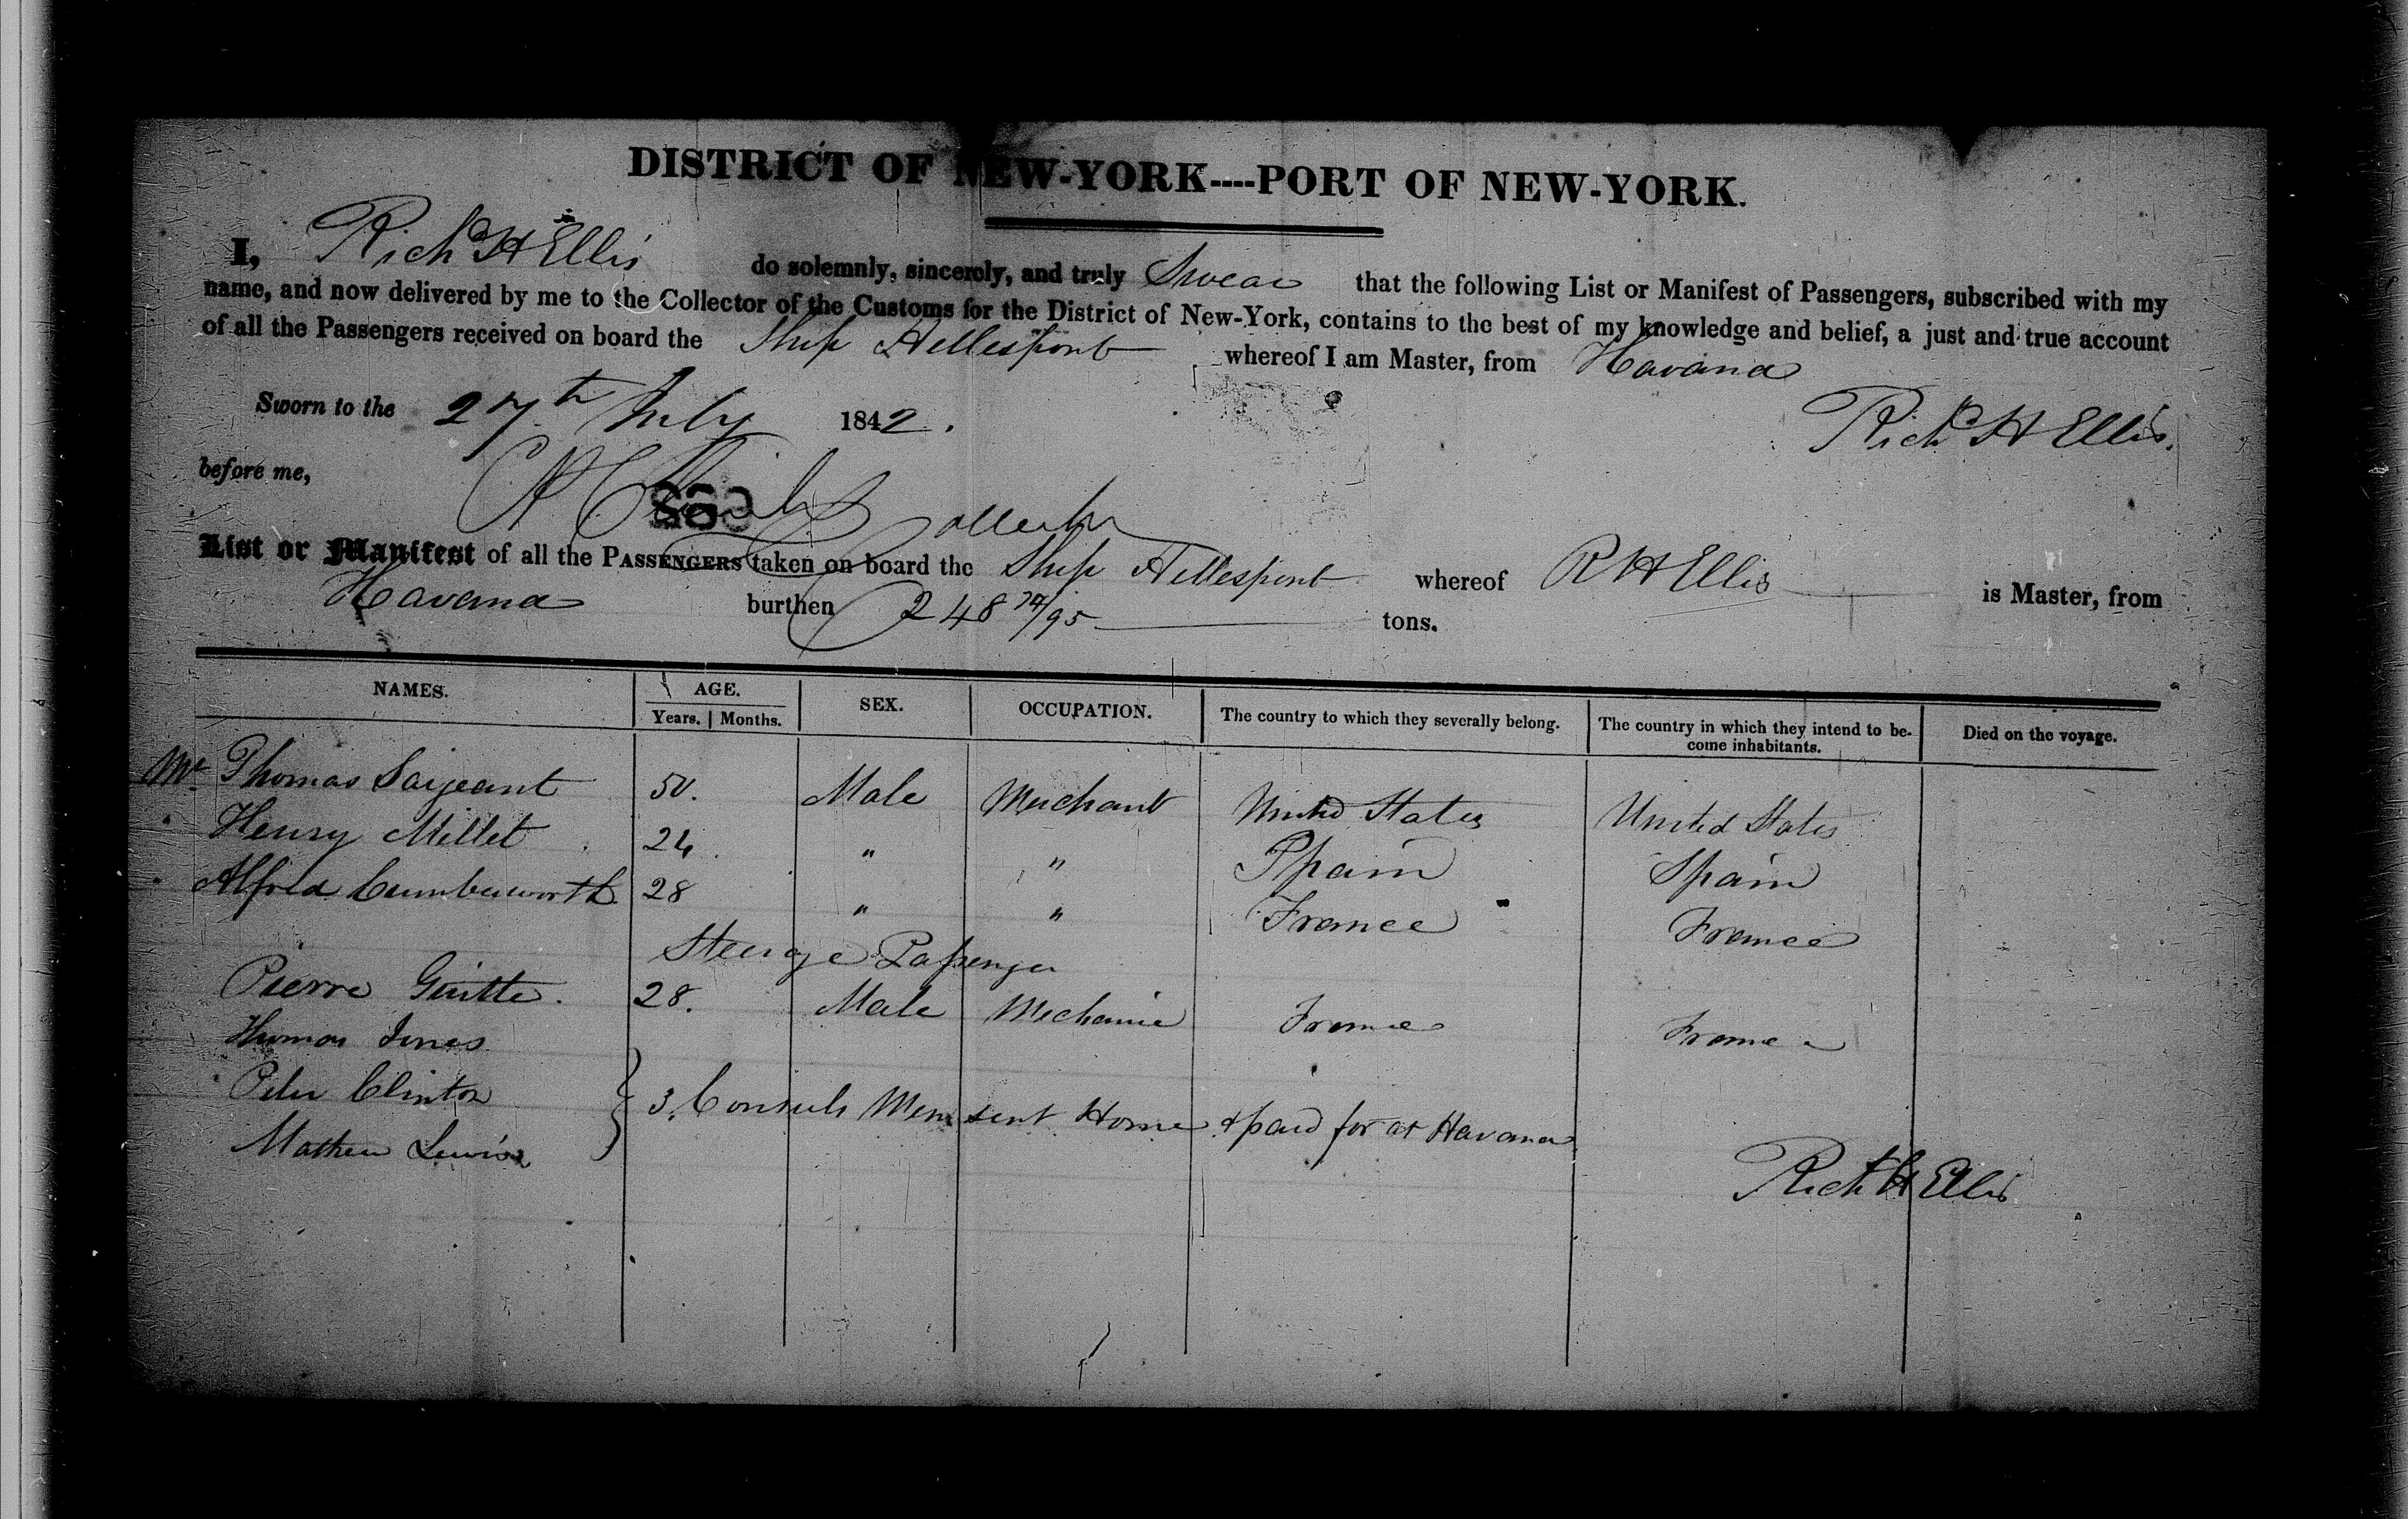 DISTRICT OF NEW-YORK----PORT OF NEW-YORK.
I, Richd H Ellis do solemnly, sincerely, and truly Swear that the following List or Manifest of Passengers, subscribed with my
name, and now delivered by me to the Collector of the Customs for the District of New-York, contains to the best of my knowledge and belief, a just and true account
of all the Passengers received on board the Ship Hellespont whereof I am Master, from Havana
Sworn to the 27th July 1842.
Richd H Ellis.
before me,
Collector
List or Manifest of all the PASSENGERS taken on board the Ship Hellespont whereof R H Ellis is Master, from
Havana burthen 248 /95 tons.
NAMES. AGE. SEX. OCCUPATION. The country to which they severally belong. The country in which they intend to be-
come inhabitants. Died on the voyage.
Years. Months.
Mr. Thomas Sargeant 50. Male Merchant United States United States
" Henry Millet 24. " " Spain Spain
" Alfred Cumberworth 28 " " France France
Steerage Passenger
Pierre 28. Male Mechanic France France
Thomas Jones
Peter Clinton } 3 Consuls Men sent Home & paid for at Havana
Mathew Lewis
Richd H Ellis